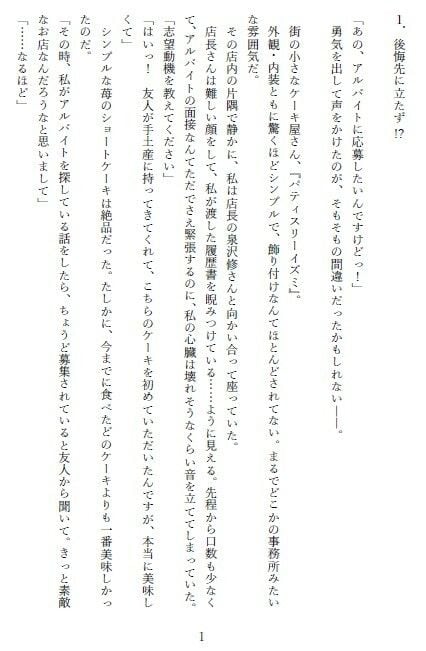 1．後悔先に立たず!?
「あの、アルバイトに応募したいんですけどっ！」
勇気を出して声をかけたのが、そもそもの間違いだったかもしれない――。
街の小さなケーキ屋さん、『パティスリーイズミ』。
外観・内装ともに驚くほどシンプルで、飾り付けなんてほとんどされてない。まるでどこかの事務所みたい
な雰囲気だ。
その店内の片隅で静かに、私は店長の泉沢修さんと向かい合って座っていた。
店長さんは難しい顔をして、私が渡した履歴書を睨みつけている……ように見える。先程から口数も少なく
て、アルバイトの面接なんてただでさえ緊張するのに、私の心臓は壊れそうなくらい音を立ててしまっていた。
「志望動機を教えてください」
「はいっ！　友人が手土産に持ってきてくれて、こちらのケーキを初めていただいたんですが、本当に美味し
くて」
シンプルな苺のショートケーキは絶品だった。たしかに、今までに食べたどのケーキよりも一番美味しかっ
たのだ。
「その時、私がアルバイトを探している話をしたら、ちょうど募集されていると友人から聞いて。きっと素敵
なお店なんだろうなと思いまして」
「……なるほど」
1